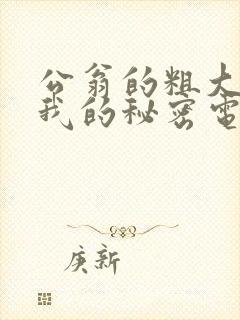 公翁的粗大
我的秘密電
庚新